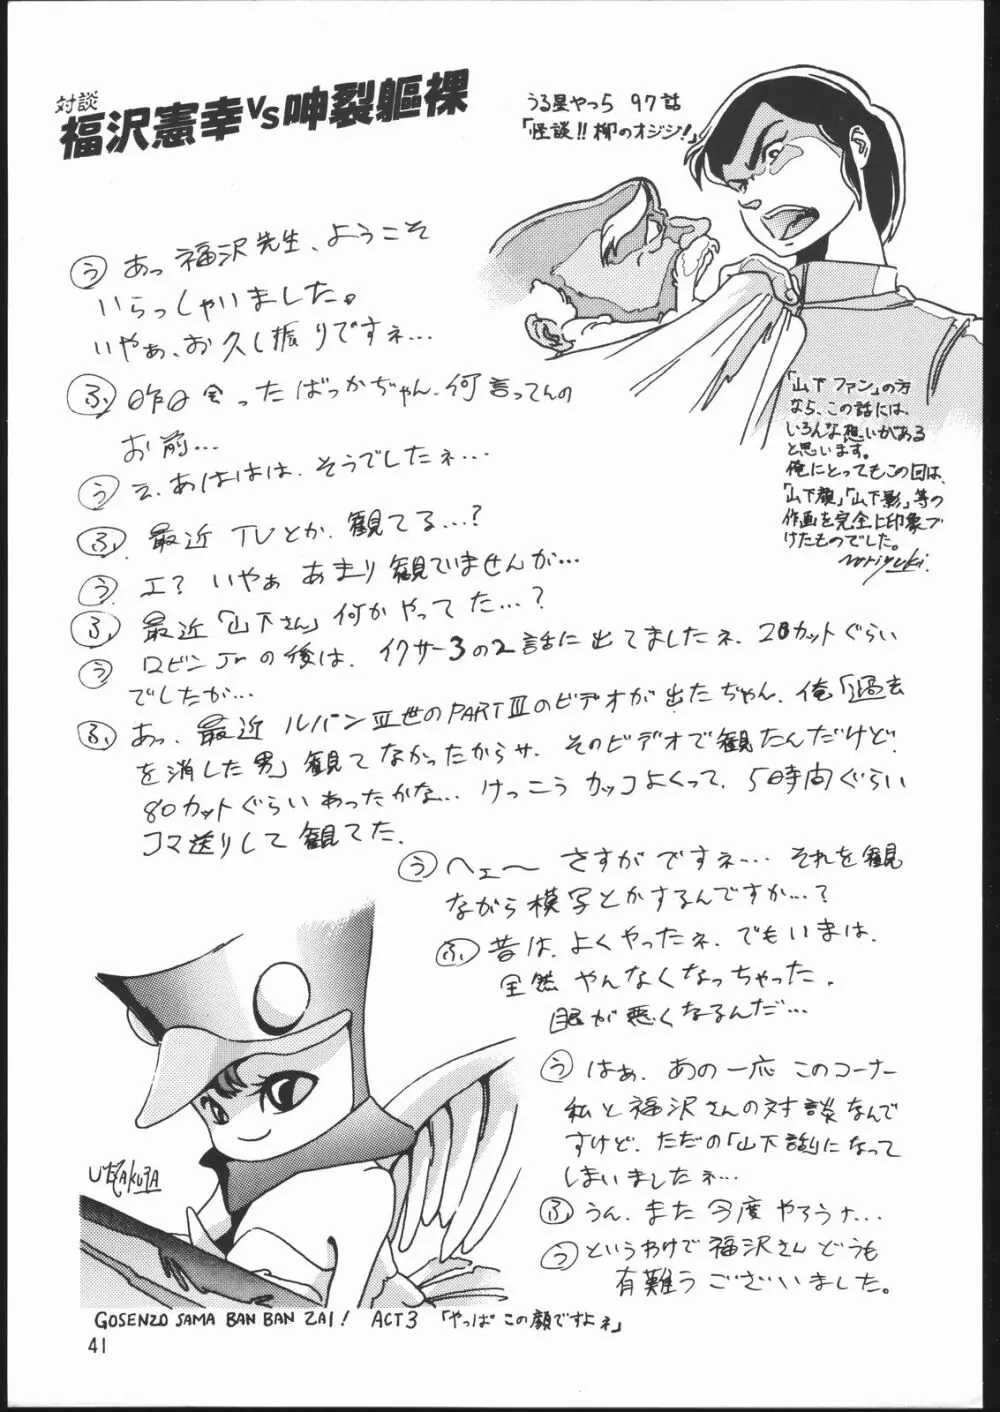 対談
福沢憲幸VS呻裂軀裸
うる星やつ5 97話
「怪談!!柳のオジジ!」
う あっ福沢先生、ようこそ
いらっしゃいました。
いやぁ、お久し振りですネ…
ふ 昨日会ったばっかぢゃん、何言ってんの
お前…
う え、あははは、そうでしたネ…
ふ 最近TVとか、観てる…?
う エ?いやぁあまり観ていませんが…
ふ 最近「山下さん」何かやってた…?
う ロビンJrの後は、イクサー3の2話に出てましたネ、20カットぐらい
でしたが…
ふ あっ、最近ルパンⅢ世のPARTⅢのビデオが出たぢゃん、俺「過去
を消した男」観てなかったからサ、そのビデオで観たんだけど、
80カットぐらいあったかな…けっこうカッコよくって、5時間ぐらい
コマ送りして観てた、
う ヘェ〜さすがですネ…それを観
ながら模写とかするんですか…?
ふ 昔は、よくやったネ、でもいまは、
全然やんなくなっちゃった、
眼が悪くなるんだ…
う はぁ、あの一応このコーナー
私と福沢さんの対談なんで
すけど、ただの「山下談り」になって
しまいましたネ…
ふ うん、また今度やろうナ…
う というわけで福沢さんどうも
有難うございました。
「山下ファン」の方
なら、この話には、
いろんな想いがある
と思います。
俺にとってもこの回は、
「山下顔」「山下影」等の
作画を完全に印象づ
けたものでした。
noriyuki.
UTZAKURA
GOSENZO SAMA BAN BAN ZAI! ACT3 「やっぱこの顔ですよネ」
41